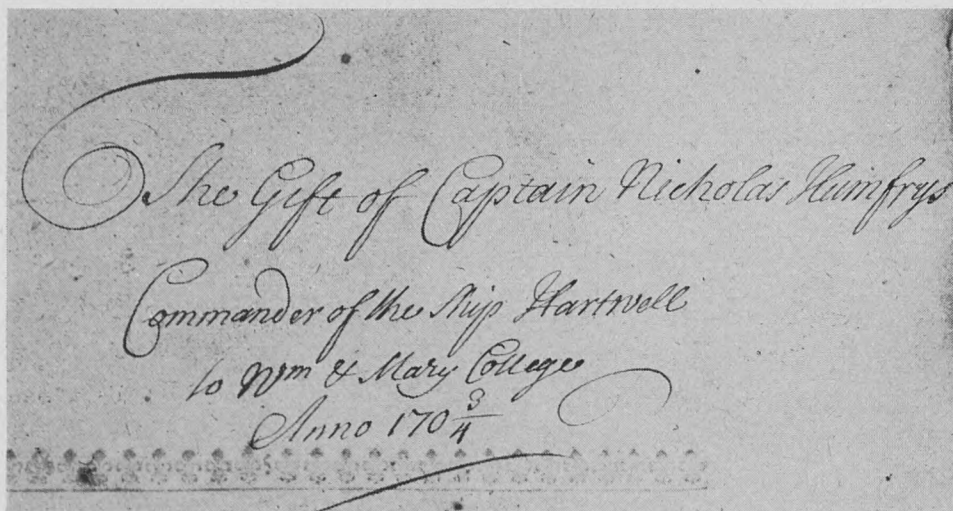 The Gift of Captain Nicholas Humfrys
Commander of the Ship Hartwell
to Wm & Mary College
Anno 170 3/4